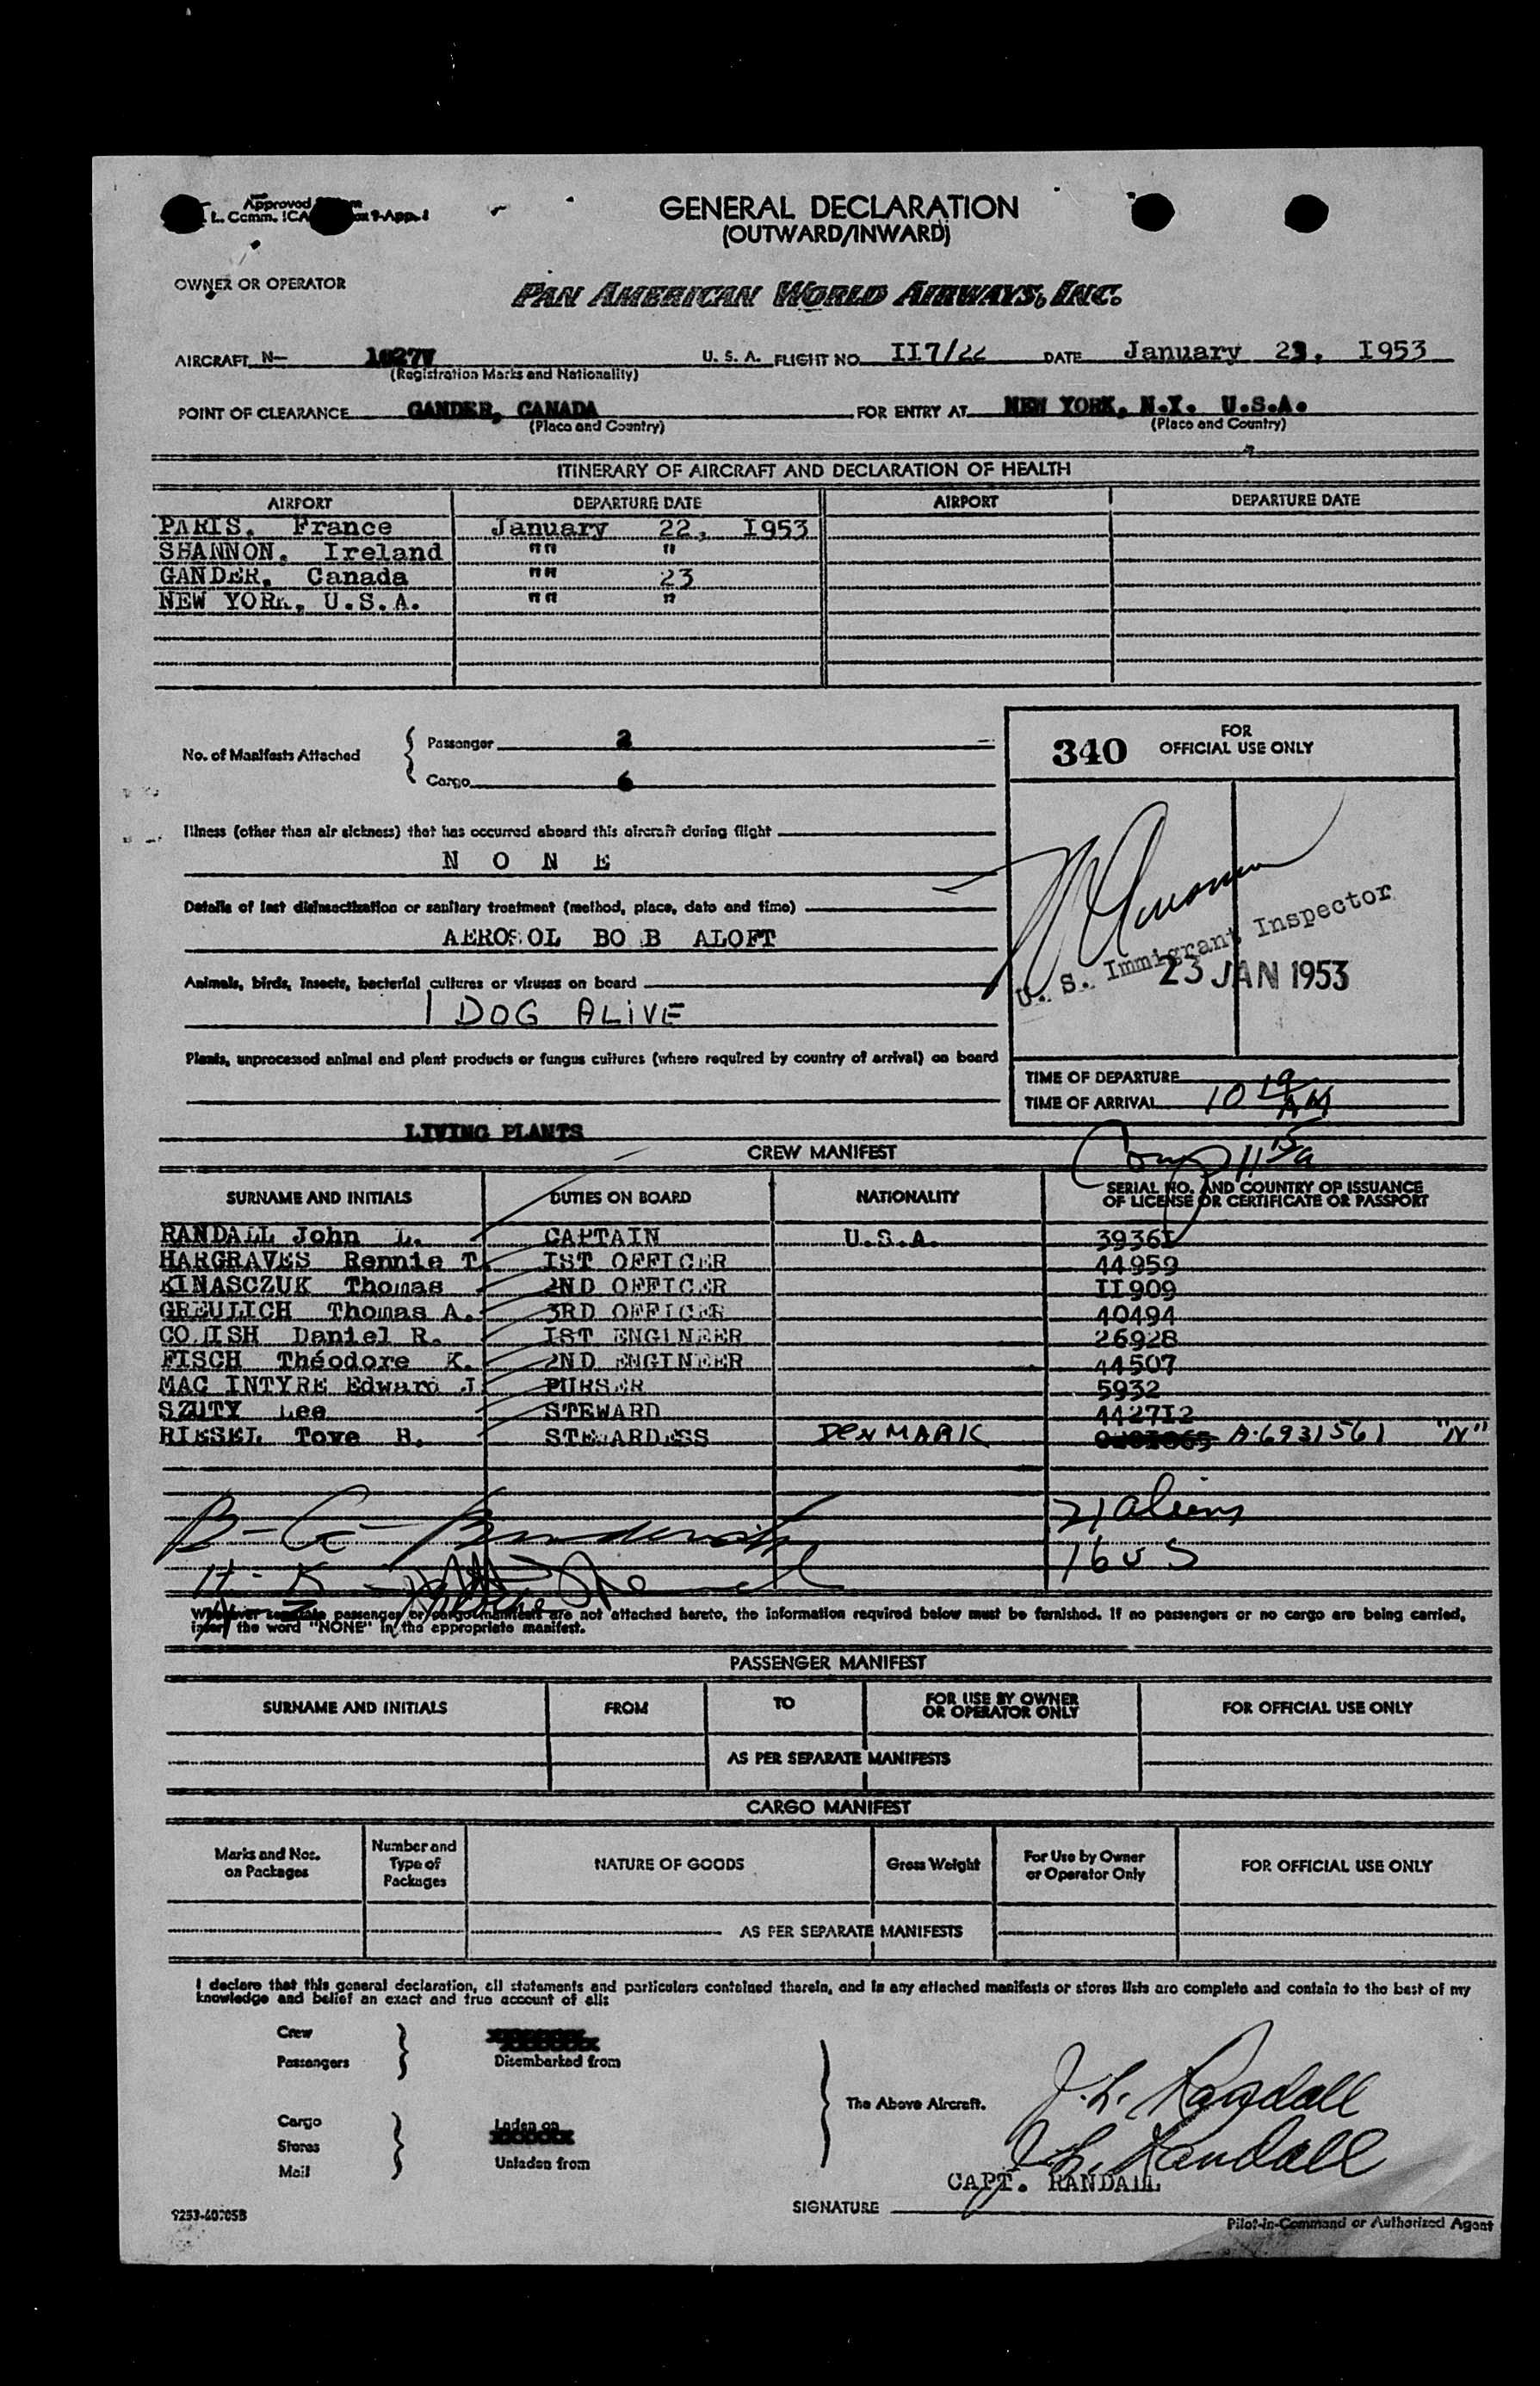 Approved
L. Comm. ICA 9-App. 1
GENERAL DECLARATION
(OUTWARD/INWARD)
OWNER OR OPERATOR
PAN AMERICAN WORLD AIRWAYS, INC.
AIRCRAFT N- 1027V U. S. A. FLIGHT NO. II7/22 DATE January 23, I953
(Registration Marks and Nationality)
POINT OF CLEARANCE GANDER, CANADA FOR ENTRY AT NEW YORK, N.Y. U.S.A.
(Place and Country) (Place and Country)
ITINERARY OF AIRCRAFT AND DECLARATION OF HEALTH
AIRPORT DEPARTURE DATE AIRPORT DEPARTURE DATE
PARIS, France January 22, I953
SHANNON, Ireland "" "
GANDER, Canada "" 23
NEW YORK, U.S.A. "" "
No. of Manifests Attached
Passenger 2
Cargo 6
340 FOR OFFICIAL USE ONLY
Illness (other than air sickness) that has occurred aboard this aircraft during flight
N O N E
Details of last disinsectization or sanitary treatment (method, place, date and time)
AEROSOL BO B ALOFT
Animals, birds, insects, bacterial cultures or viruses on board
1 DOG ALIVE
U. S. Immigrant Inspector
23 JAN 1953
Plants, unprocessed animal and plant products or fungus cultures (where required by country of arrival) on board
TIME OF DEPARTURE
TIME OF ARRIVAL 10 19 AM
LIVING PLANTS
Comp 11 15 a
CREW MANIFEST
SURNAME AND INITIALS DUTIES ON BOARD NATIONALITY SERIAL NO. AND COUNTRY OF ISSUANCE
OF LICENSE OR CERTIFICATE OR PASSPORT
RANDALL John L. CAPTAIN U.S.A. 3936I
HARGRAVES Rennie T. IST OFFICER 44959
KINASCZUK Thomas 2ND OFFICER II909
GREULICH Thomas A. 3RD OFFICER 40494
CO ISH Daniel R. IST ENGINEER 26928
FISCH Théodore K. 2ND ENGINEER 44507
MAC INTYRE Edward J. PURSER 5932
SZUTY Lee STEWARD 4427I2
RIESEL Tove B. STEWARDESS DENMARK A-6931561 "N"
21 aliens
16 US
Whenever separate passenger or cargo manifests are not attached hereto, the information required below must be furnished. If no passengers or no cargo are being carried,
insert the word "NONE" in the appropriate manifest.
PASSENGER MANIFEST
SURNAME AND INITIALS FROM TO FOR USE BY OWNER OR OPERATOR ONLY FOR OFFICIAL USE ONLY
AS PER SEPARATE MANIFESTS
CARGO MANIFEST
Marks and Nos. on Packages Number and Type of Packages NATURE OF GOODS Gross Weight For Use by Owner or Operator Only FOR OFFICIAL USE ONLY
AS PER SEPARATE MANIFESTS
I declare that this general declaration, all statements and particulars contained therein, and in any attached manifests or stores lists are complete and contain to the best of my
knowledge and belief an exact and true account of all:
Crew
Passengers Disembarked from
The Above Aircraft. J. L. Randall
Cargo Laden on
Stores
Mail Unladen from
J. L. Randall
CAPT. RANDALL
SIGNATURE
Pilot-in-Command or Authorized Agent